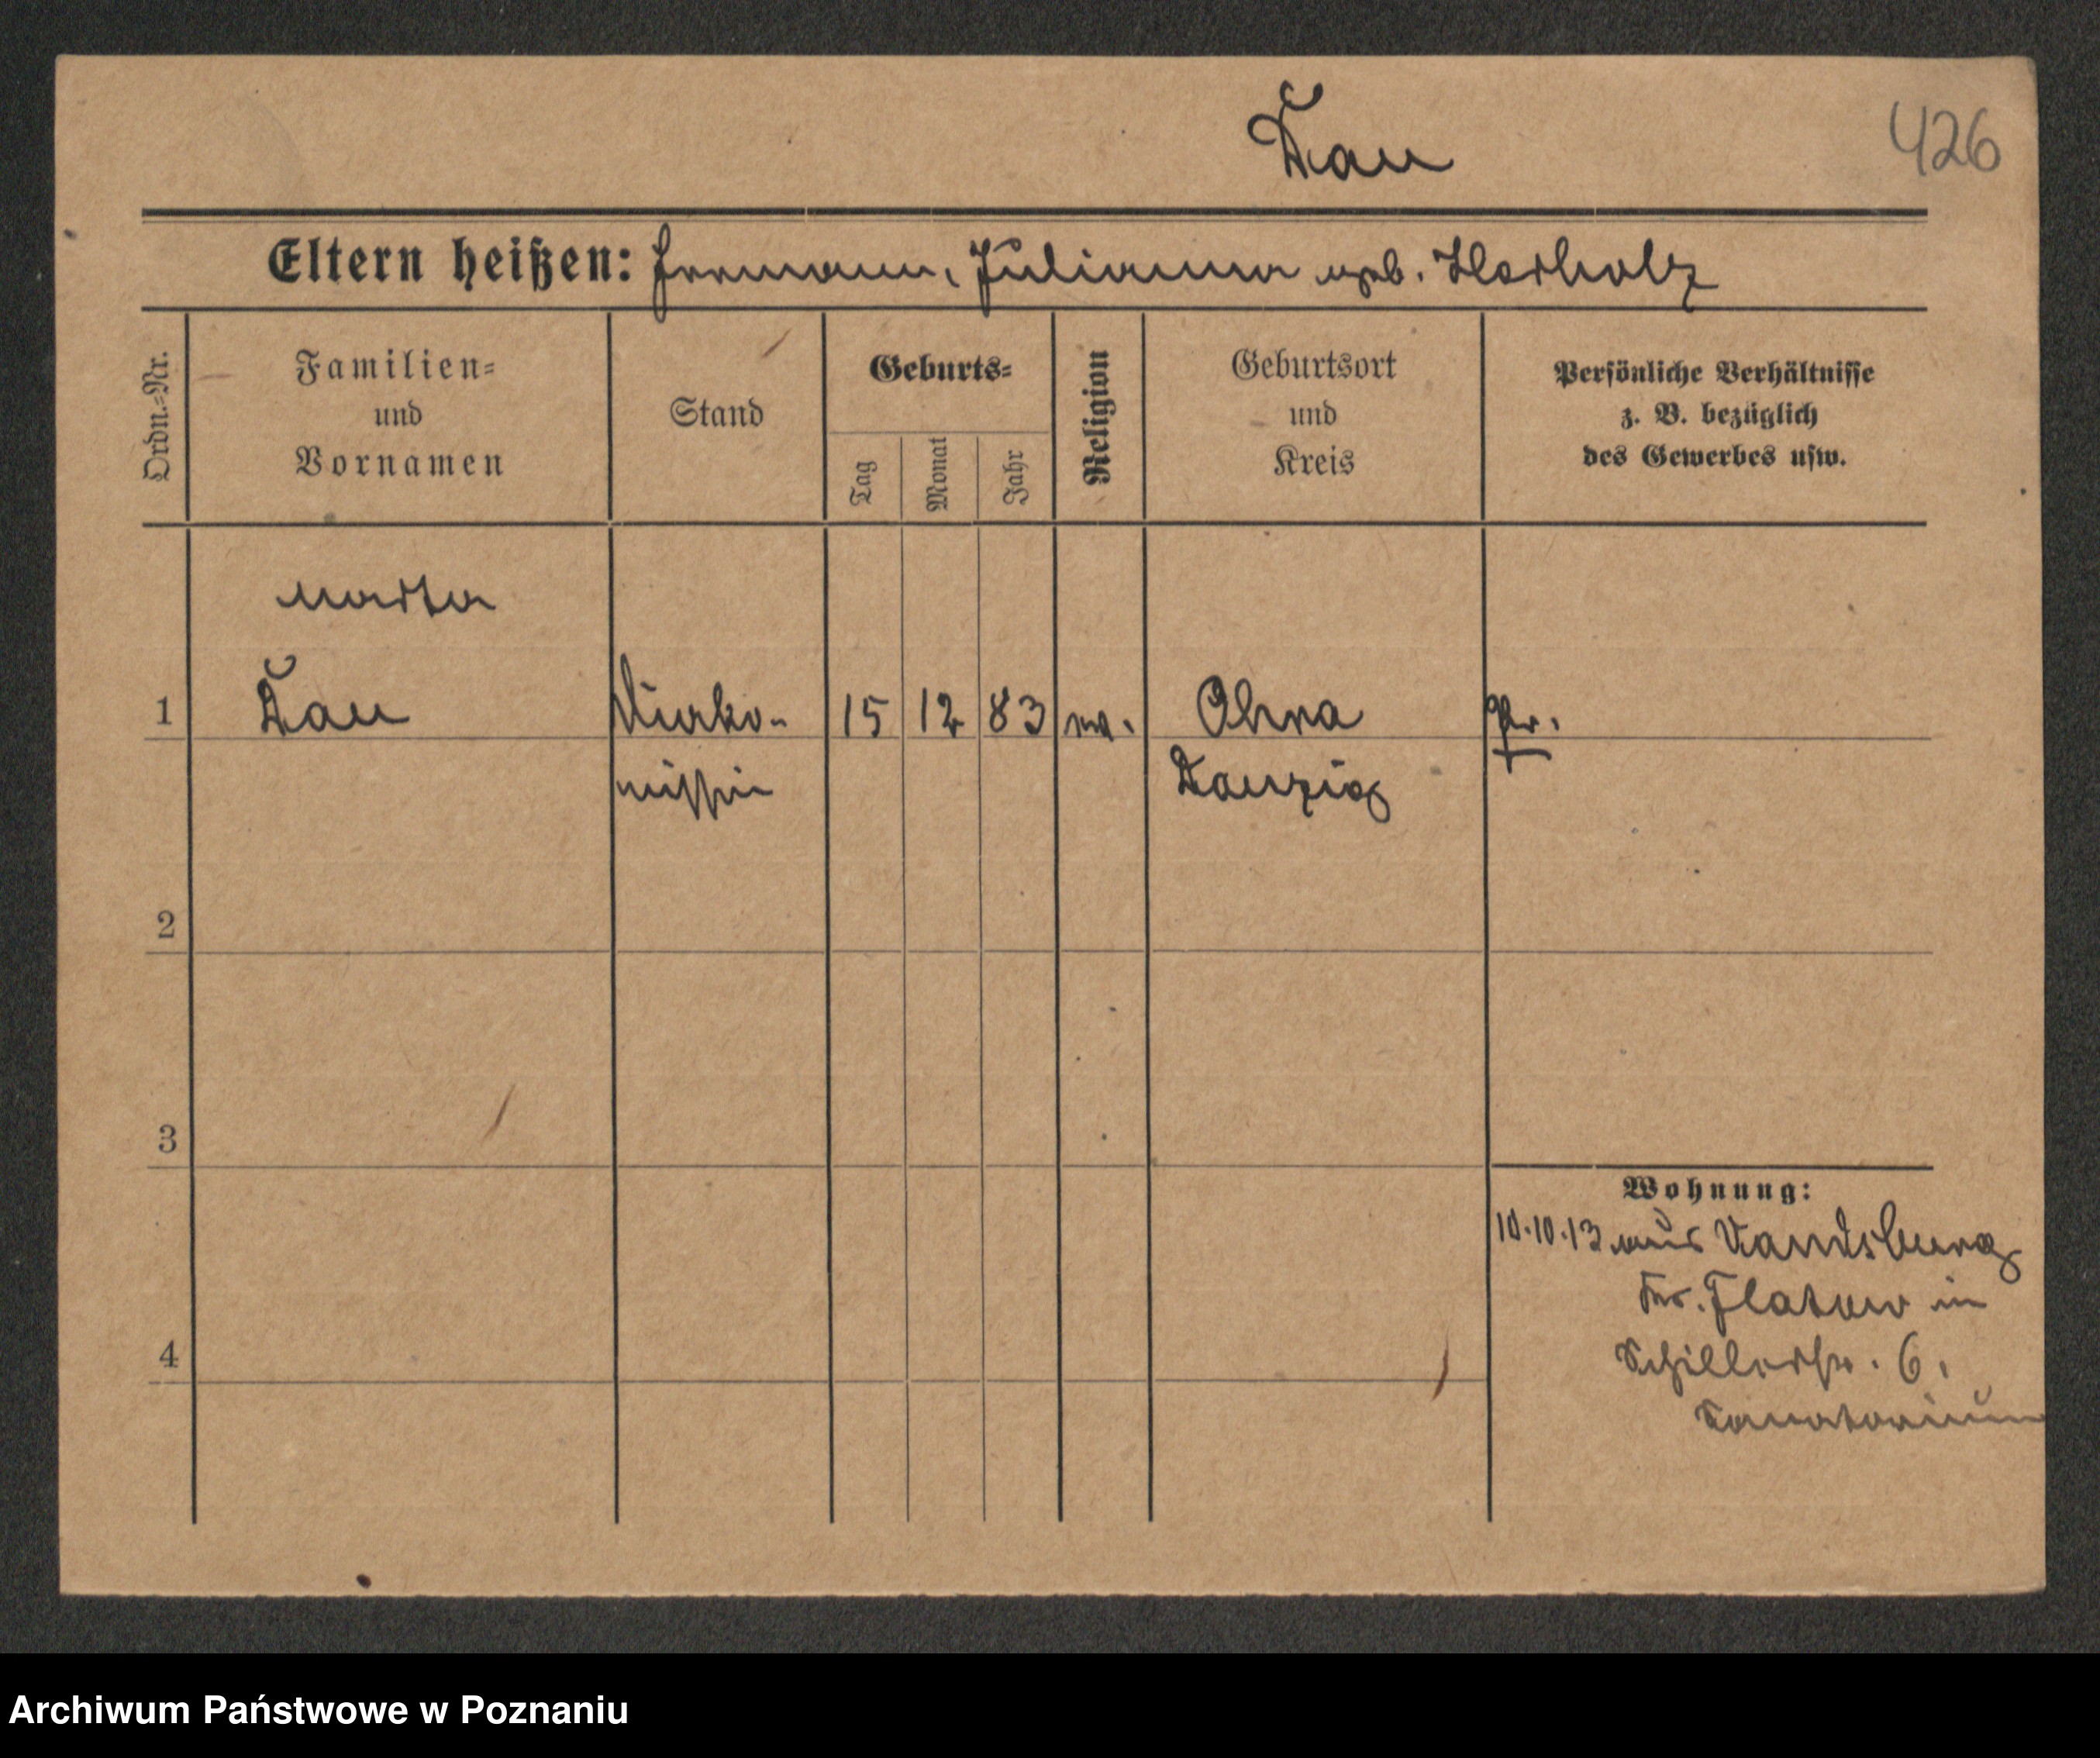 Dau
426
Eltern heißen: Hermann, Julianna geb. Harholz
Ordn.-Nr.
Familien-
und
Vornamen
Stand
Geburts-
Tag
Monat
Jahr
Religion
Geburtsort
und
Kreis
Persönliche Verhältnisse
z. B. bezüglich
des Gewerbes usw.
Marta
1 Dau Diako- 15 12 83 ev. Ohra Pr.
nissin Danzig
2
3
Wohnung:
10.10.13 aus Vandsburg
Kr. Flatow in
4
Schillerstr. 6.
Sanatorium
Archiwum Państwowe w Poznaniu